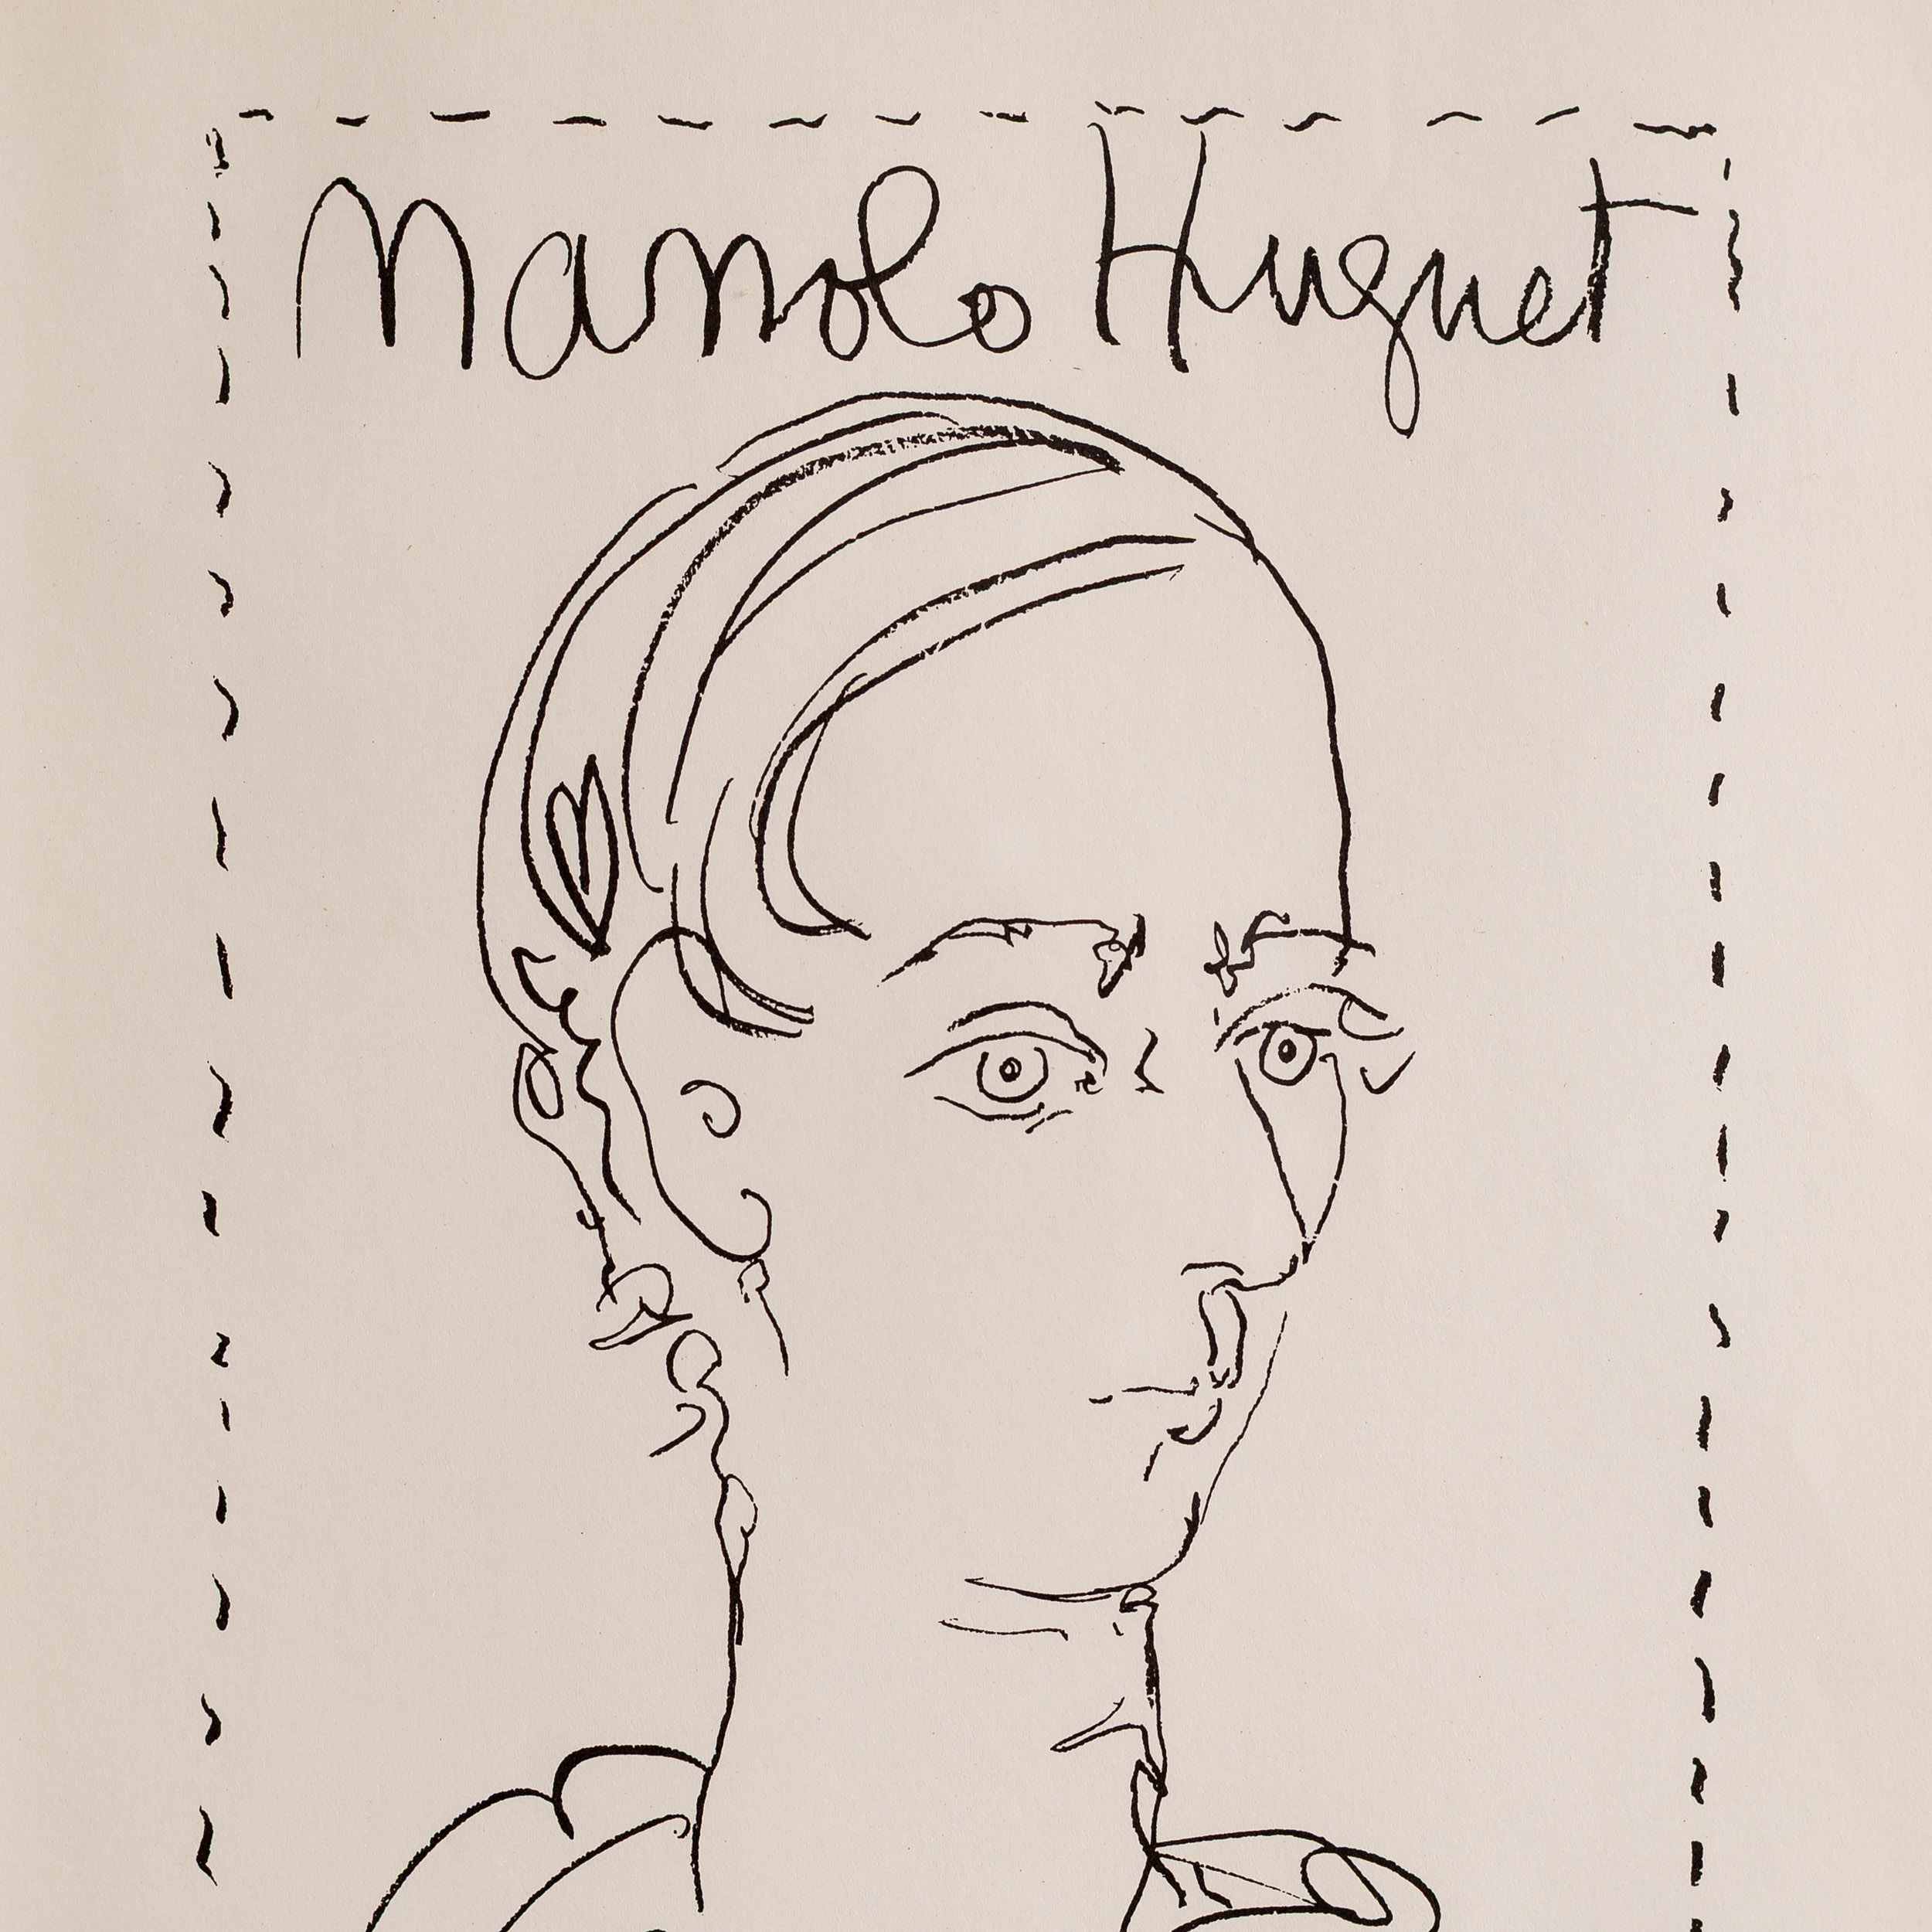 Manolo Huguet